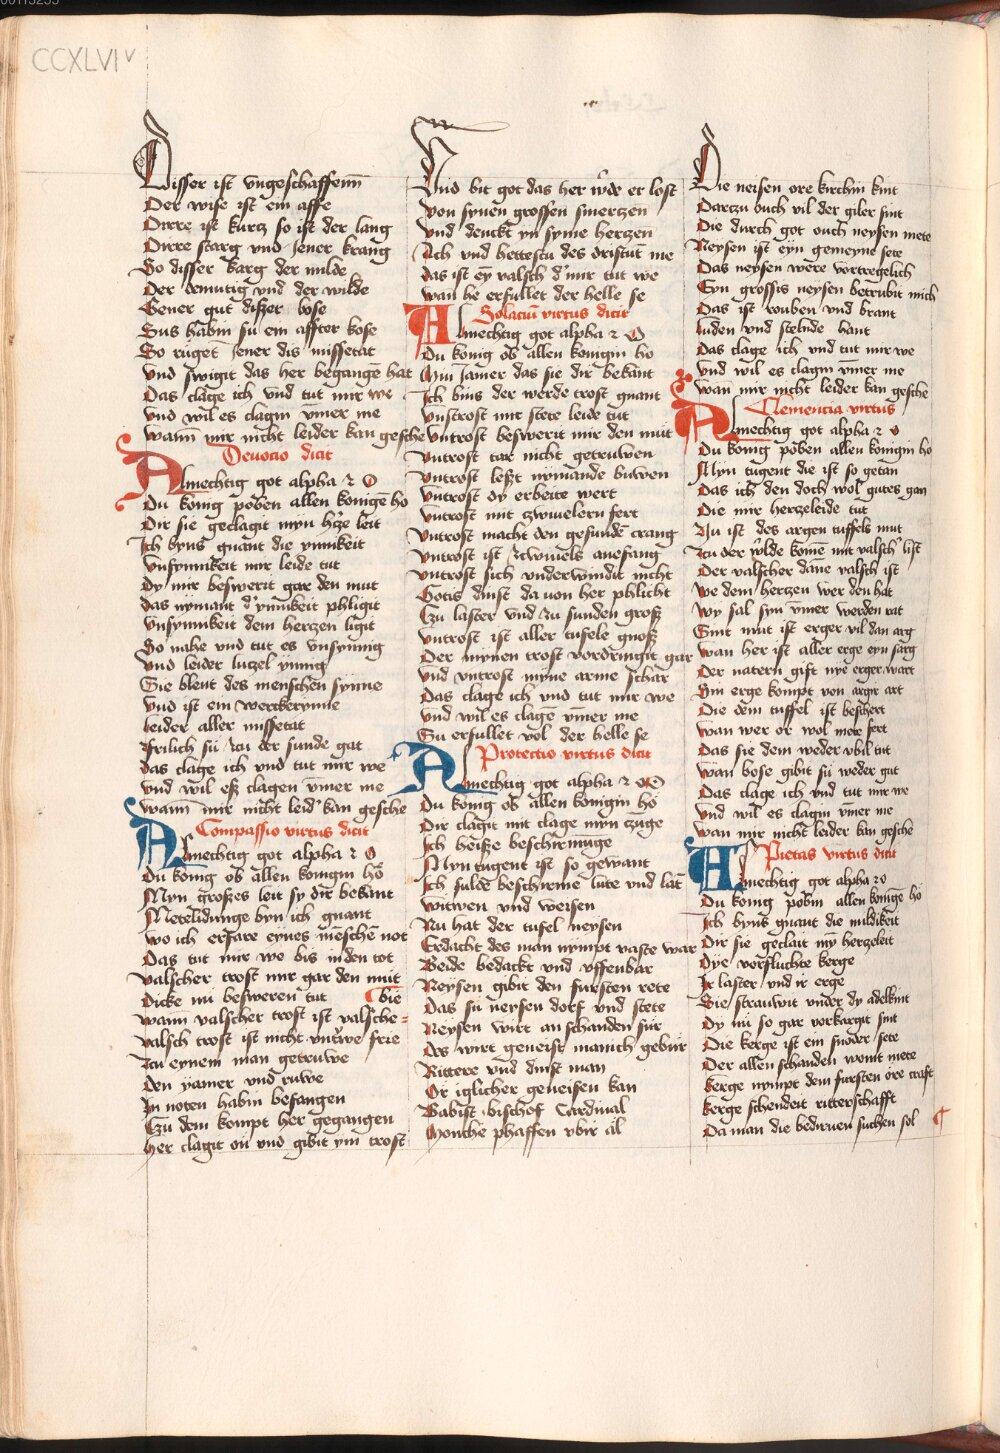 CCXLVI v
Disser ist vngeschaffenn
Der wise ist ein affe
Dirre ist kurcz so ist der lang
Dirre starg vnd Jener krang
So disser karg der milde
Der demutig vnd der wilde
Gener gut diszer bose
Sus habin su ein affter kose
So rüget Jener dis missetat
Vnd swigit das her begange hat
Das clage ich vnd tut mir we
Vnd wil es clagin vmer me
Wann mir nicht leider kan gesche
Deuocio dicit
Almechtig got alpha z O
Du konig poben allen konigē ho
Dir sie geclagit myn h'ze leit
Ich byns gnant die ynnikeit
Vnsynnikeit mir leide tut
Dy mir beswerit gar den mut
das nymant d' ynnikeit phligit
Vnsynnikeit dem herzen ligit
So nahe vnd tut es vnsynnig
Vnd leider luczel ynnig
Sie blent des menschen synne
Vnd ist ein werckerynne
leider aller missetat
Frilich sü zcu der sunde gat
das clage ich vnd tut mir we
vnd wil esz clagen vmer me
wann mir nicht leid' kan gesche
Compassio virtus dicit
Almechtig got alpha z O
Du konig ob allen konigin ho
Myn groszes leit sy dir bekant
Metelidunge byn ich gnant
Wo ich erfare eynes mēschē not
Das tut mir we bis in den tot
valscher trost mir gar den mut
Dicke mi besweren tut bie
wann valscher trost ist valsche=
Valsch trost ist nicht vntrwe frie
Zcu eynem man getruwe
Den yamer vnd ruwe
In noten habin befangen
Czu dem kompt her gegangen
Her clagit on vnd gibit ym trost
Vnd bit got das her wder er lost
von synen grossen smerczen
Vnd denckt yn syme herczen
Ach vnd hettestu des dristunt me
das ist ey valsch d' mir tut we
wan he erfullet der helle se
Solaciū virtus dicit
Almechtig got alpha z O
Du konig ob allen konigin ho
Min Jamer das sie dir bekant
Ich bins der werde trost gnant
Vnstrost mir stete leide tut
Vntrost beswerit mir den mut
Vntrost tar nicht getruwen
Vntrost leszt nymande buwen
Vntrost dy erbeite wert
Vntrost mit zwiuelern fert
Vntrost macht den gesundē crang
Vntrost ist zcwiuels anefang
Vntrost sich vnderwindit nicht
Gotis dinst da von her phlicht
Czu laster vnd zu sunden grosz
Vntrost ist aller tufele gnosz
Der mynen trost vordringit gar
Vnd vntrost myne arme schar
Das clage ich vnd tut mir we
Vnd wil es clagē vmer me
Su erfullet vol der helle se
Protectio virtus dicit
Almechtig got alpha z O
Du konig ob allen konigin ho
Dir clagit mit clage myn czūge
Ich heisze beschirmūge
Myn tugent ist so gewant
Ich sulde beschirme lute vnd lāt
witwen vnd weisen
Nu hat der tufel neysen
Erdacht des man nympt vaste war
Beide bedackt vnd vffenbar
Neysen gibit den fursten rete
Das su neysen dorf vnd stete
Neysen wirt an schanden für
Des wirt geneist manich gebur
Rittere vnd dinst man
Or iglicher geneisen kan
Babist bischof Cardinal
Monche phaffen vbir al
Die neisen ore kirchin kint
Darczu ouch vil der giler sint
Die durch got ouch neysen mete
Neysen ist eyn gemeyne sete
Das neysen were vortregelich
Eyn grossis neysen betrubit mich
Das ist rouben vnd brant
Juden vnd stelnde hant
Das clage ich vnd tut mir we
Vnd wil es clagin vmer me
wan mir nicht leider kan gesche
Clemencia virtus
Almechtig got alpha z o
Du konig poben allen konigin ho
Myn tugent die ist so getan
Das ich den doch wol gutes gan
Die mir herzeleide tut
Nu ist des argen tuffels mut
Zcu der wlde komē mit valsch' list
Der valscher dāne valsch ist
we dem herczen wer den hat
Wy sal syn vmer werden rat
Sint mut ist erger vil dan arg
wan her ist aller erge eyn sarg
Der natern gift nye erger wart
Sin erge kompt von arger art
Die dem tuffel ist beschert
wan wer or wol mete fert
Das sie dem weder vbil tut
wan bose gibit sü weder gut
Das clage ich vnd tut mir we
Vnd wil es clagin vmer me
wan mir nicht leider kan gesche
Pietas virtus dicit
Almechtig got alpha z o
Du konig pobin allen konigē ho
Ich byns gnant die mildikeit
Dir sie geclait my herzeleit
Dye vorfluchte kerge
Ir laster vnd ir erge
Sie strauwit vnder dy adelkint
Dy nu so gar vorkargit sint
Die kerge ist ein snoder sete
Der allen schanden wont mete
kerge nympt dem fursten ore craft
kerge schendeit ritterschafft
Da man die bediruen suchen sol